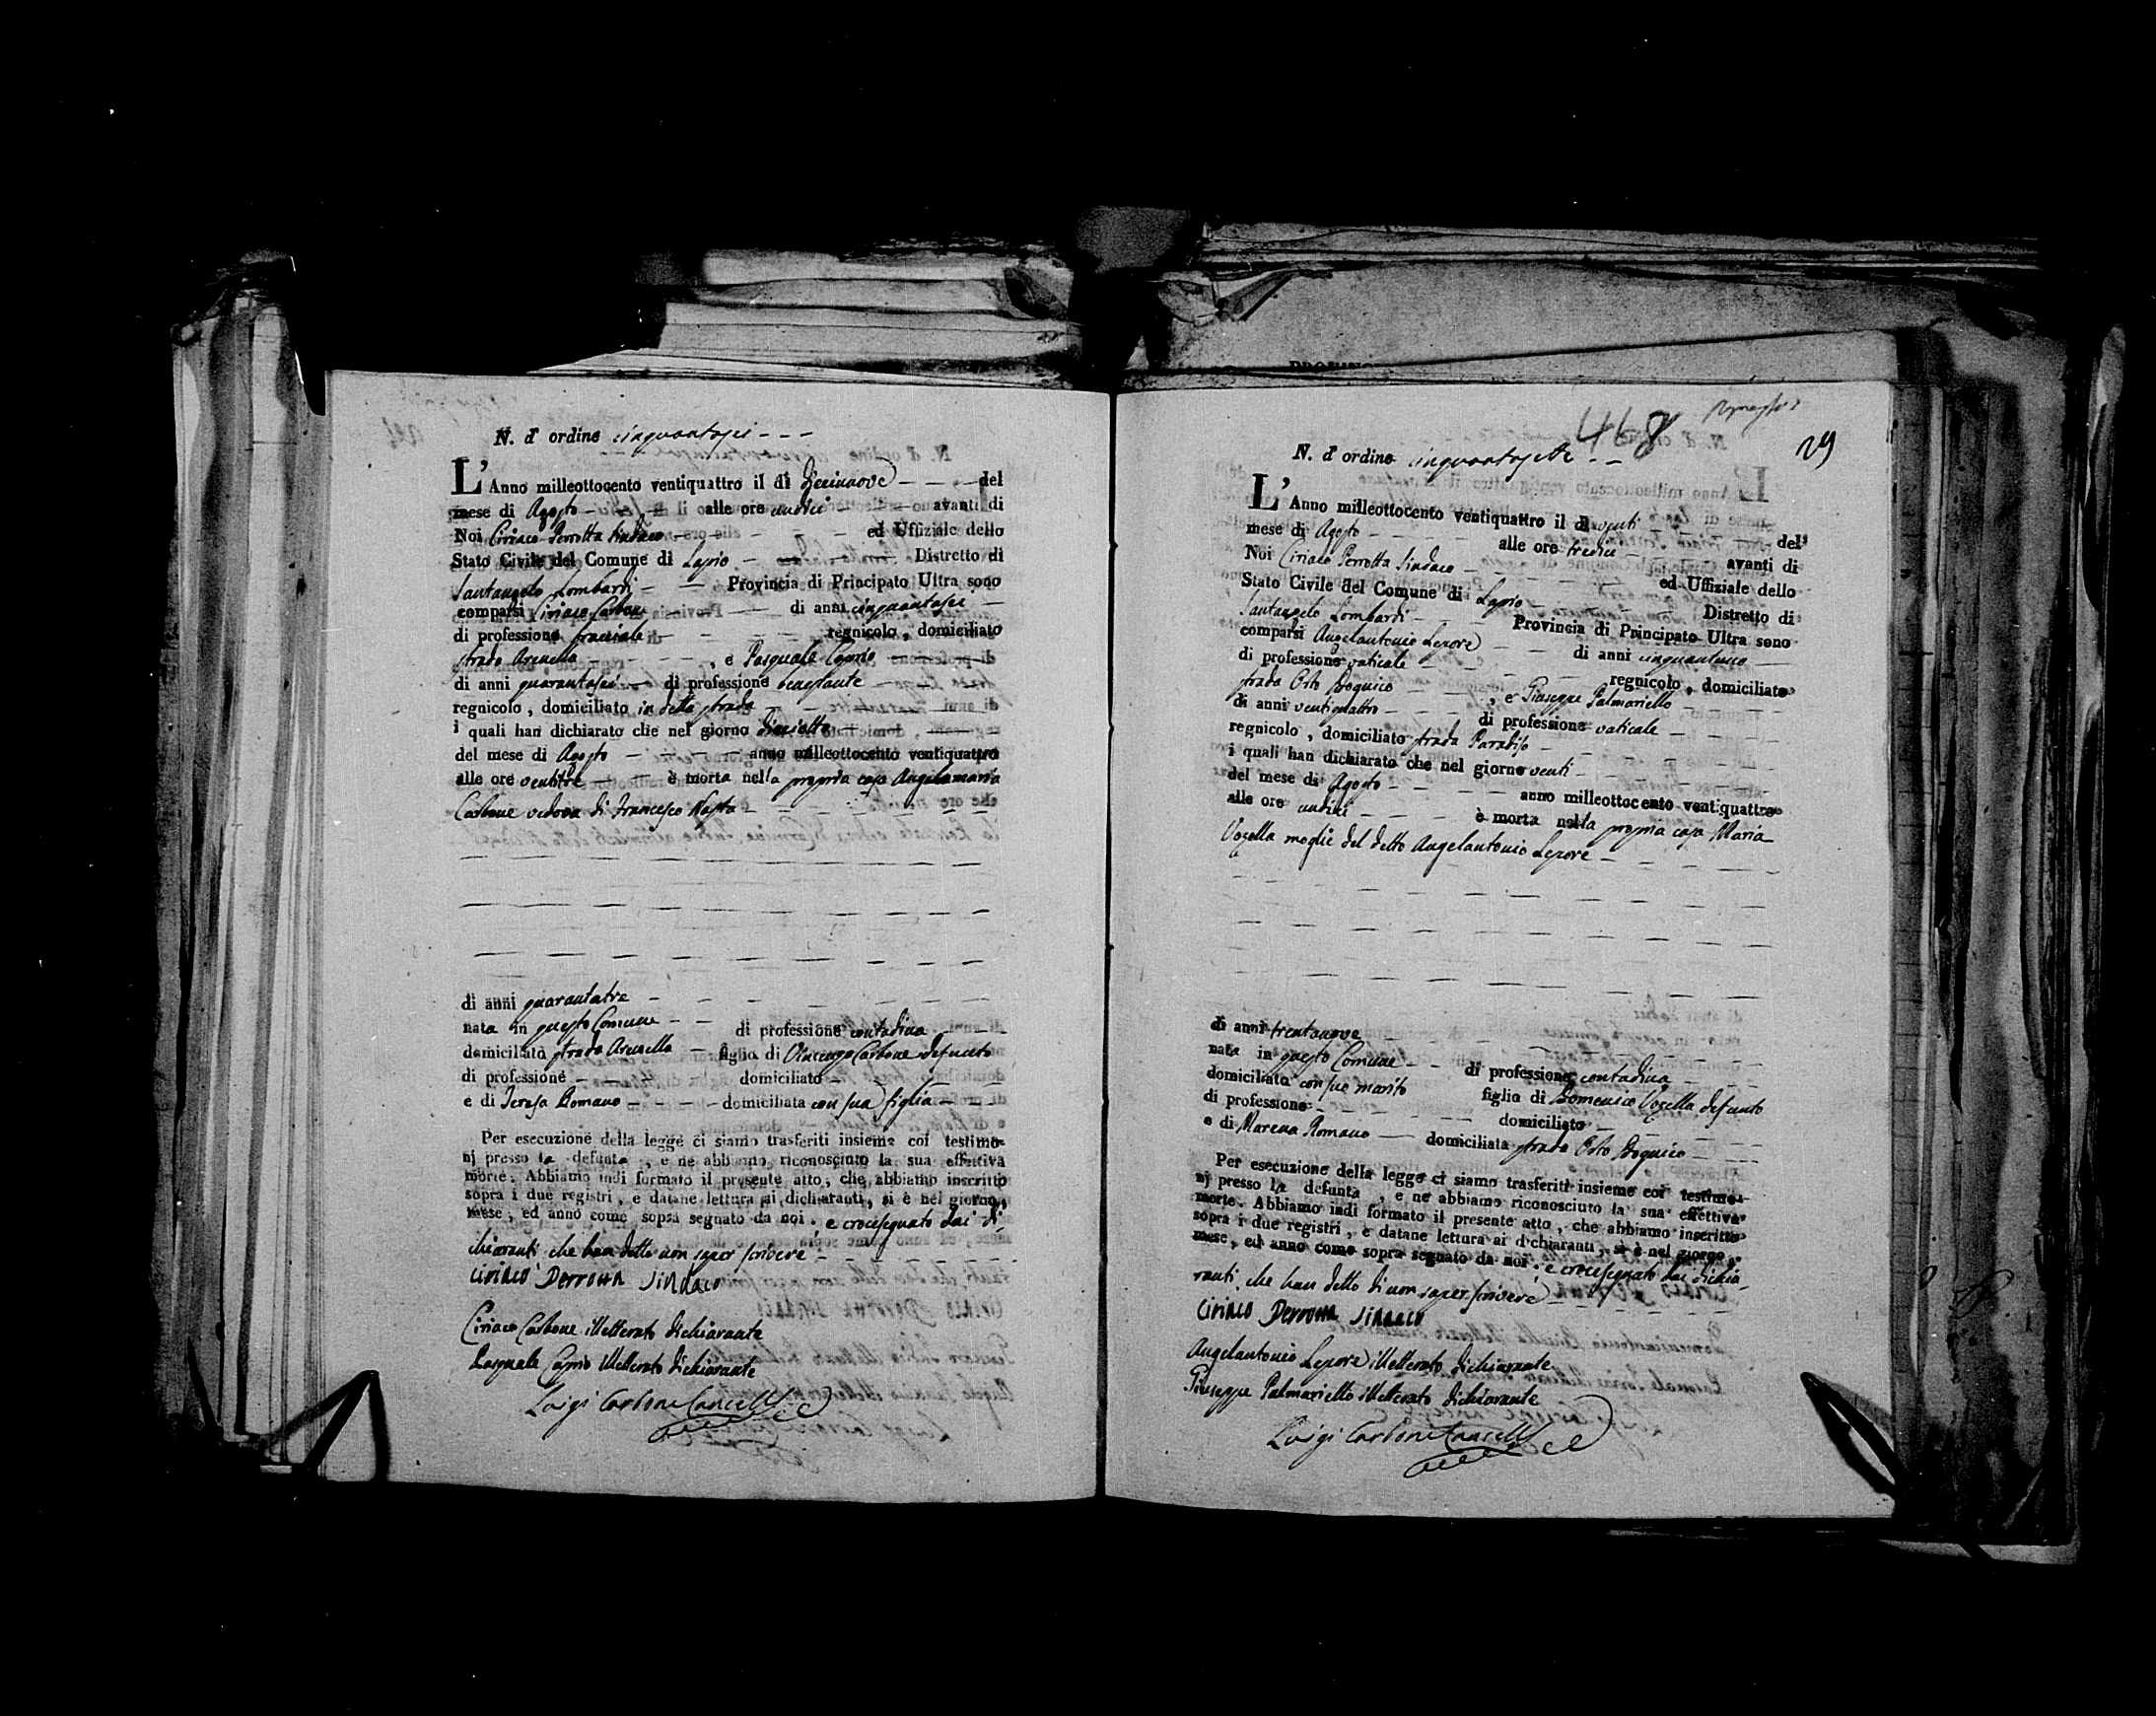 N. d' ordine cinquantasei
L' Anno milleottocento ventiquattro il dì diecinnove del
mese di Agosto alle ore undici avanti di
Noi Ciriaco Perrotta Sindaco ed Uffiziale dello
Stato Civile del Comune di Lapio Distretto di
Santangelo Lombardi Provincia di Principato Ultra sono
comparsi Ciriaco Carbone di anni cinquantasei
di professione bracciale regnicolo, domiciliato
strada Arenella, e Pasquale Caprio
di anni quarantasei di professione
regnicolo, domiciliato in detta strada
i quali han dichiarato che nel giorno dieciotto
del mese di Agosto anno milleottocento ventiquattro
alle ore ventitre è morta nella propria casa Angelamaria
Carbone vedova di Francesco
di anni quarantatre
nata in questo Comune di professione contadina
domiciliata strada Arenella figlia di Vincenzo Carbone defunto
di professione domiciliato
e di Teresa Romano domiciliata con sua figlia
Per esecuzione della legge ci siamo trasferiti insieme coi testimo-
nj presso la defunta, e ne abbiamo riconosciuto la sua effettiva
morte. Abbiamo indi formato il presente atto, che abbiamo inscritto
sopra i due registri, e datane lettura ai dichiaranti, si è nel giorno,
mese, ed anno come sopra segnato da noi, e crocesegnato dai di
chiaranti che han detto non saper scrivere
Ciriaco Perrotta Sindaco
Ciriaco Carbone illetterato dichiarante
Pasquale Caprio illetterato dichiarante
Luigi Carbone Cancell
468
29
N. d' ordine cinquantasette
L' Anno milleottocento ventiquattro il dì venti del
mese di Agosto alle ore tredici avanti di
Noi Ciriaco Perrotta Sindaco ed Uffiziale dello
Stato Civile del Comune di Lapio Distretto di
Santangelo Lombardi Provincia di Principato Ultra sono
comparsi Angelantonio Lepore di anni cinquantuno
di professione vaticale regnicolo, domiciliato
strada Orto, e Giuseppe Palmariello
di anni ventiquattro di professione vaticale
regnicolo, domiciliato strada Paradiso
i quali han dichiarato che nel giorno venti
del mese di Agosto anno milleottocento ventiquattro
alle ore undici è morta nella propria casa Maria
Vozella moglie del detto Angelantonio Lepore
di anni trentanove
nata in questo Comune di professione contadina
domiciliata con suo marito figlia di Domenico Vozella defunto
di professione domiciliato
e di Marena Romano domiciliata strada Orto
Per esecuzione della legge ci siamo trasferiti insieme coi testimo-
nj presso la defunta, e ne abbiamo riconosciuto la sua effettiva
morte. Abbiamo indi formato il presente atto, che abbiamo inscritto
sopra i due registri, e datane lettura ai d'chiaranti, si è nel giorno,
mese, ed anno come sopra segnato da noi, e crocesegnato dai dichia
ranti che han detto di non saper scrivere
Ciriaco Perrotta Sindaco
Angelantonio Lepore illetterato dichiarante
Giuseppe Palmariello illetterato dichiarante
Luigi Carbone Cancell